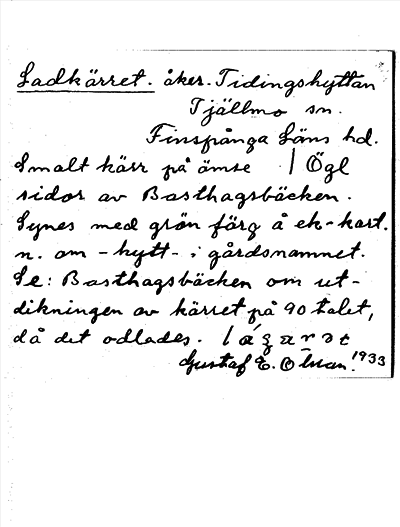 Ladkärret. åker. Tidingshyttan
Tjällmo sn.
Finspånga Läns hd.
Smalt kärr på ömse | Ögl
sidor av Basthagsbäcken.
Synes med grön färg å ek-kart.
n. om -hytt- i gårdsnamnet.
Se: Basthagsbäcken om ut-
dikningen av kärret på 90 talet,
då det odlades.
Gustaf E. Olsson. 1933